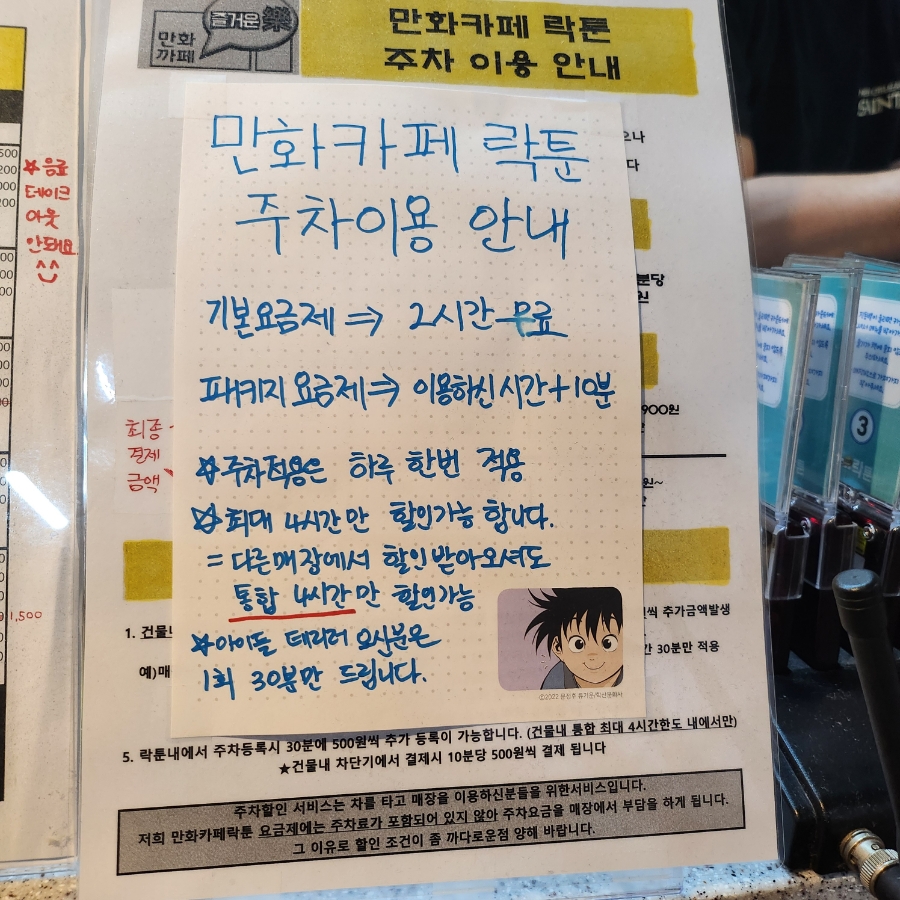 즐거운 樂
만화
까페
만화카페 락툰
주차 이용 안내
만화카페 락툰
주차이용 안내
기본요금제 ⇒ 2시간 무료
패키지 요금제 ⇒ 이용하신 시간 + 10분
☆주차적용은 하루 한번 적용
☆최대 4시간만 할인가능 합니다.
= 다른매장에서 할인받아오셔도
통합 4시간만 할인가능
☆아이들 데리러 오신분은
1회 30분만 드립니다.
★음료
테이크
아웃
안돼요
^^
최종
결제
금액
1,500
1. 건물
예)매
900원
원씩 추가금액발생
30분만 적용
5. 락툰내에서 주차등록시 30분에 500원씩 추가 등록이 가능합니다. (건물내 통합 최대 4시간한도 내에서만)
★건물내 차단기에서 결제시 10분당 500원씩 결제 됩니다
주차할인 서비스는 차를 타고 매장을 이용하신분들을 위한서비스입니다.
저희 만화카페락툰 요금제에는 주차료가 포함되어 있지 않아 주차요금을 매장에서 부담을 하게 됩니다.
그 이유로 할인 조건이 좀 까다로운점 양해 바랍니다.
3